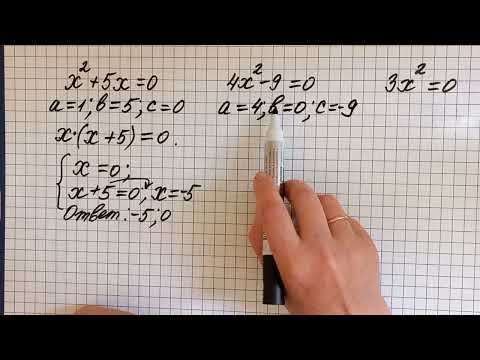 x² + 5x = 0
a = 1; в = 5; c = 0
x·(x + 5) = 0.
x = 0;
x + 5 = 0, x = -5
Ответ: -5; 0
4x² - 9 = 0
a = 4; в = 0; c = -9
3x² = 0